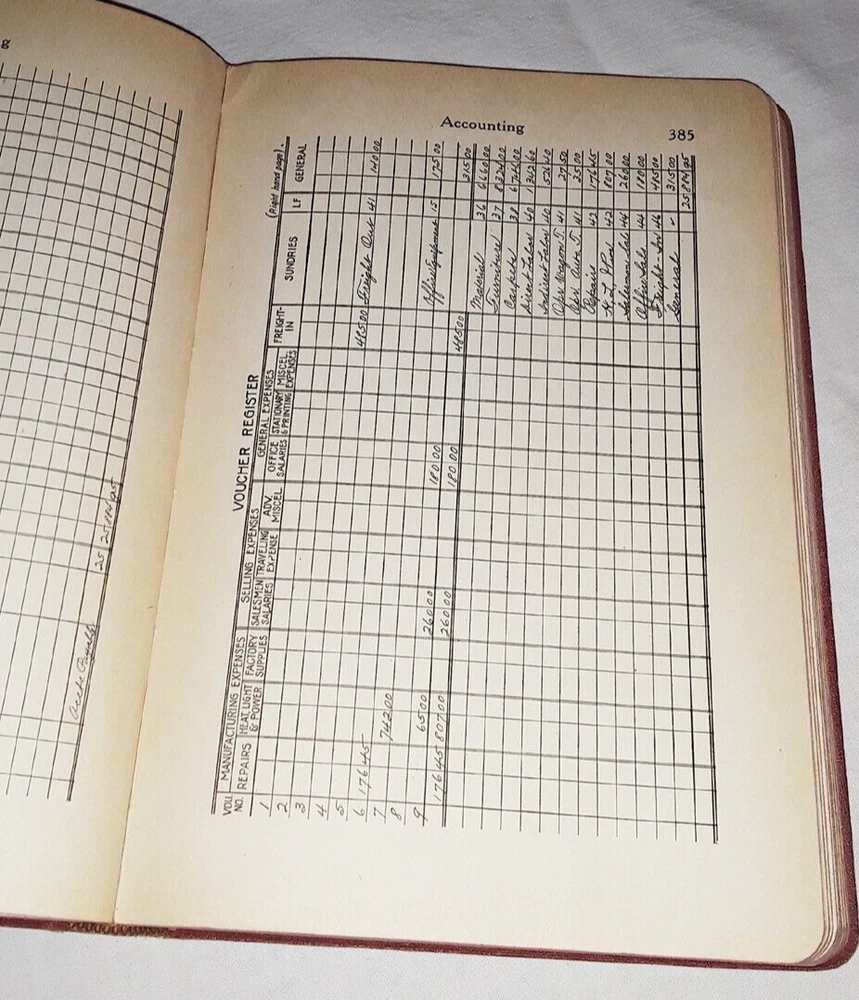 g
Accts Payable 25
Accounting 385
VOUCHER REGISTER
(Right hand page).
VOU. NO. MANUFACTURING EXPENSES SELLING EXPENSES GENERAL EXPENSES FREIGHT-IN SUNDRIES LF GENERAL
REPAIRS HEAT, LIGHT & POWER FACTORY SUPPLIES SALESMEN SALARIES TRAVELLING EXPENSE ADV. MISCEL OFFICE SALARIES STATIONARY & PRINTING MISCEL EXPENSES
1
2
3
4
5
6 176 45 485 00 Freight Out 41 140 00
7 742 00
8
9 65 00 260 00 180 00 Office Equipment 15 175 00
176 45 807 00 260 00 180 00 485 00 315 00
Material 36 6 660 00
Furniture 37 8 324 00
Carpets 38
Direct Labor 40
Indirect Labor 40 526 40
Oper. Wagon T. 41 27 50
Oper. Auto T. 41 25 00
Repairs 42 176 45
H. L. & Pow. 42 807 00
Salesmen Sal. 44 260 00
Office Sals 44 180 00
Freight-In 46 485 00
General ✓ 315 00